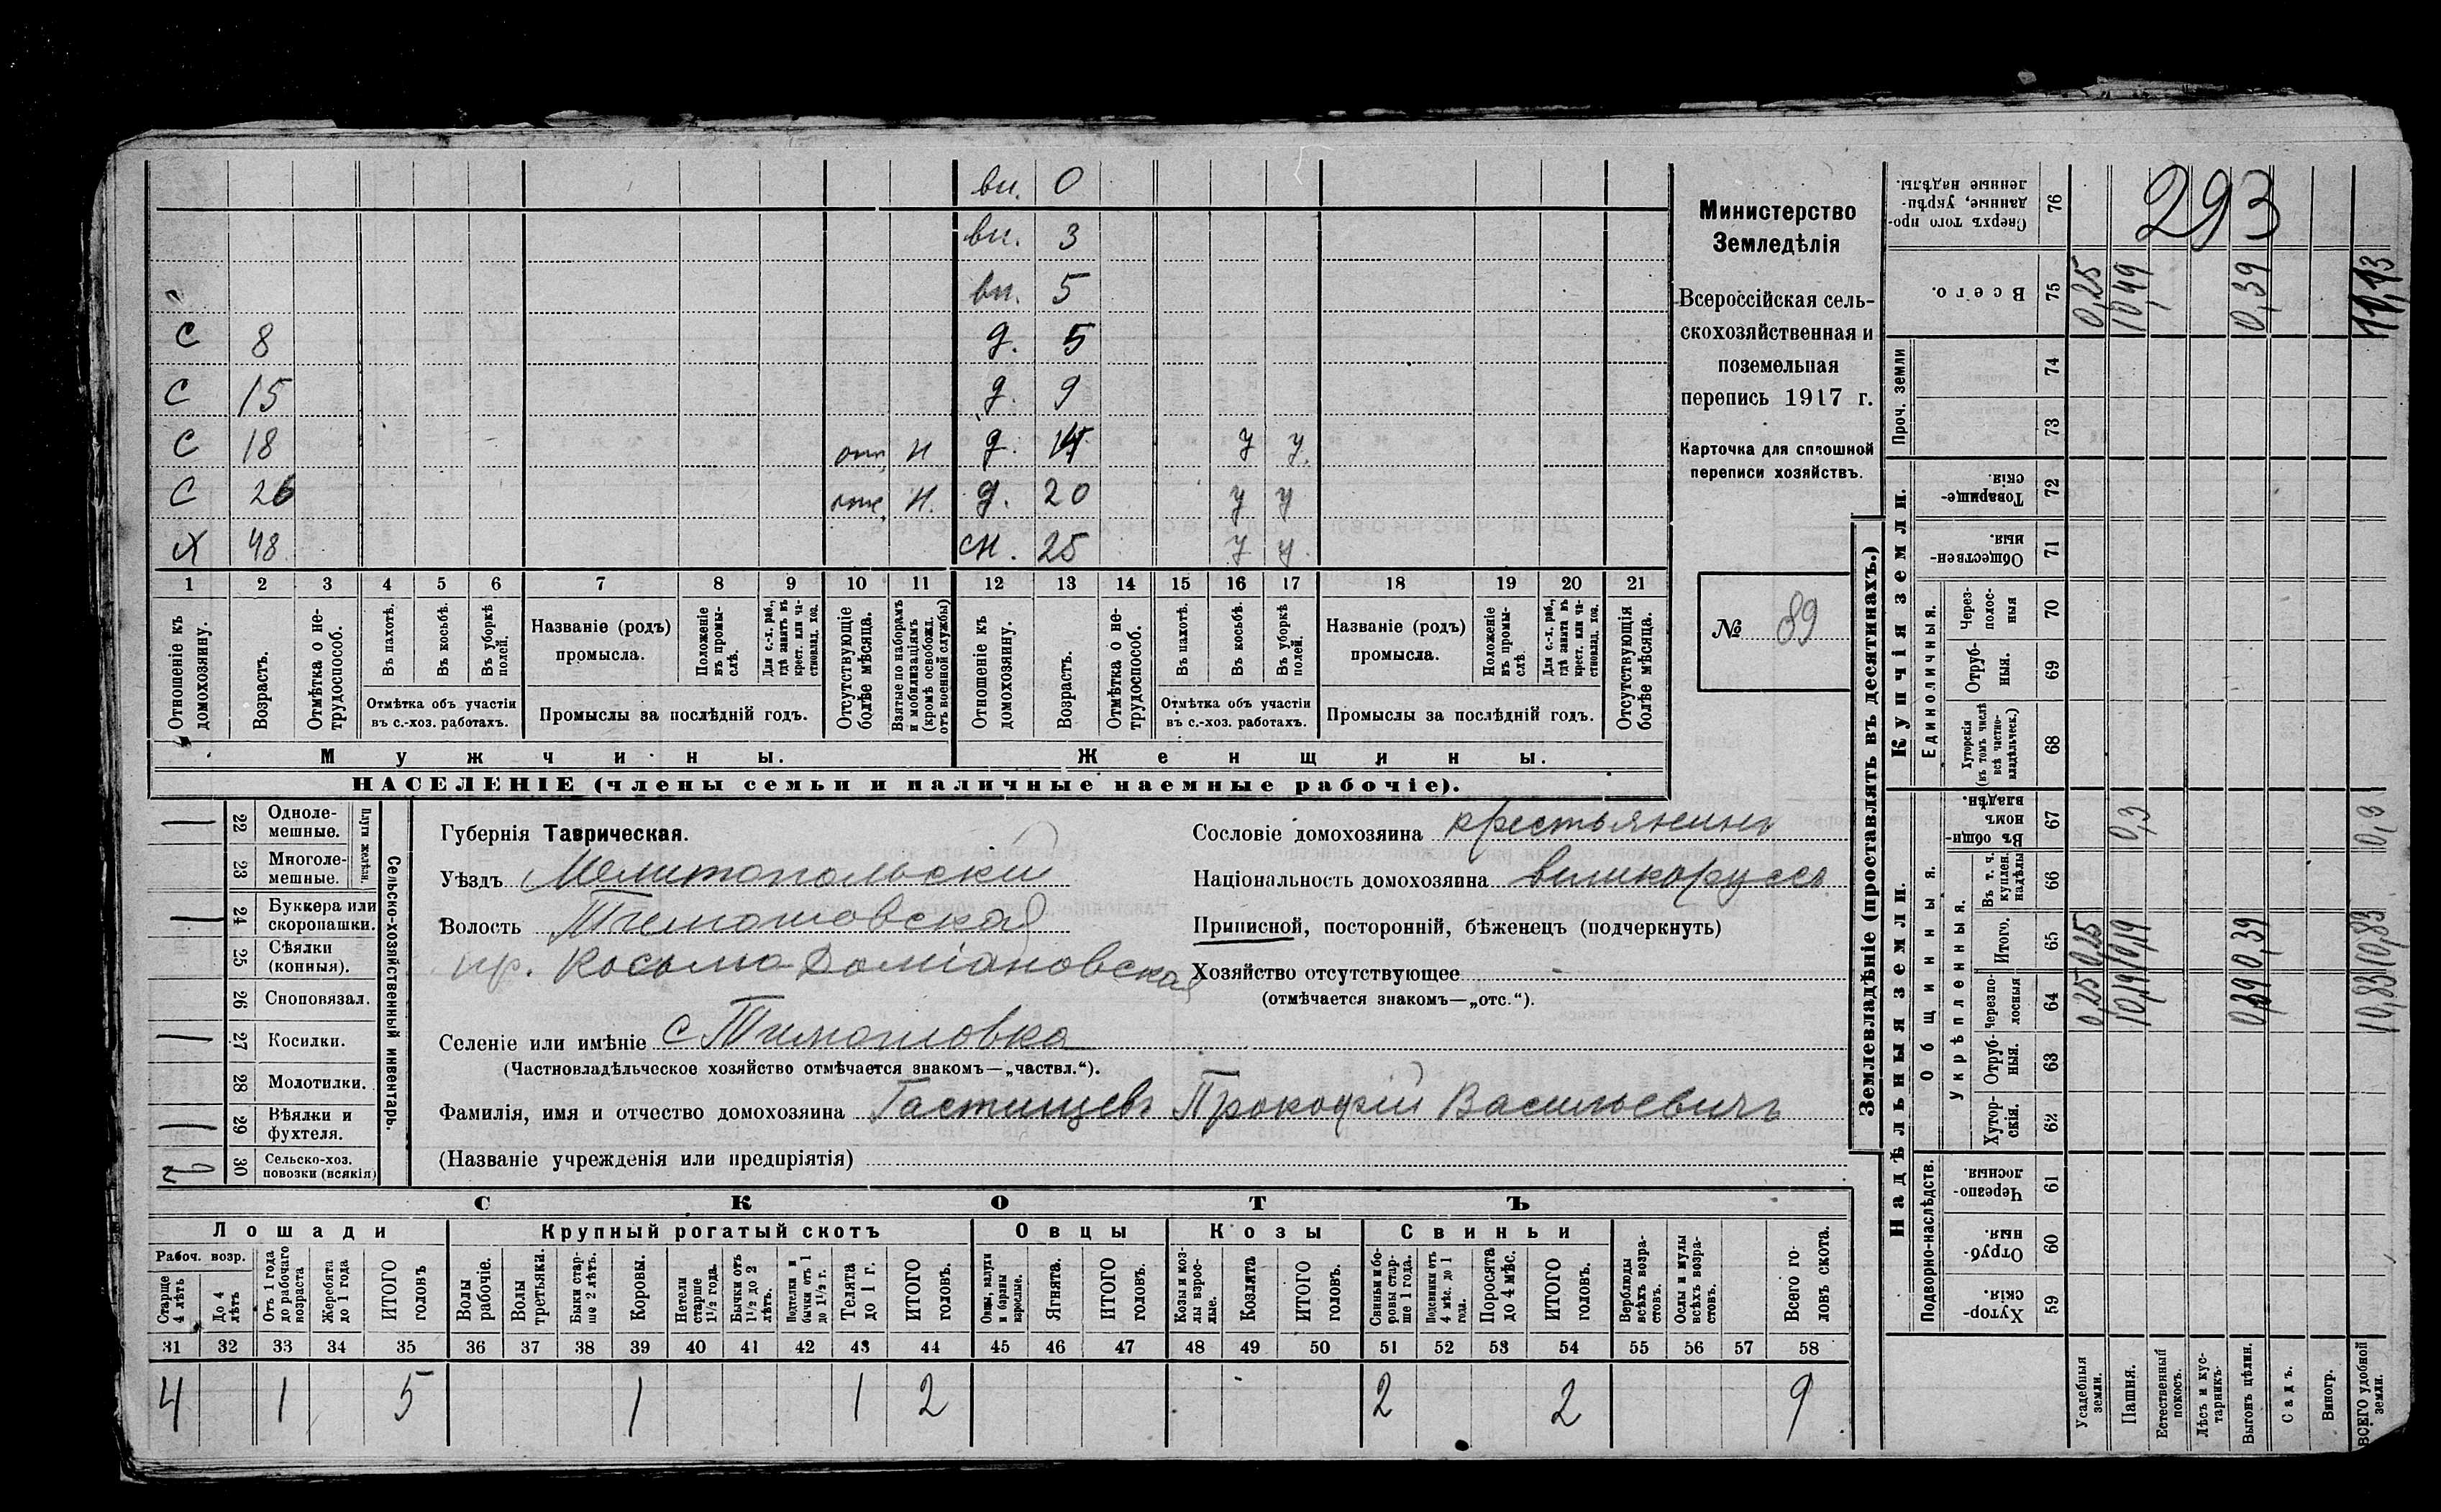 вн. 0
вн. 3
вн. 5
с 8 д. 5
с 15 д. 9
с 18 отс. н д. у у.
с 26 отс. н. д. 20 у у
х 48 сн. 25 у у.
1 2 3 4 5 6 7 8 9 10 11 12 13 14 15 16 17 18 19 20 21
Отношеніе къ домохозяину.
Возрастъ.
Отмѣтка о не-трудоспособ.
Въ пахотѣ.
Въ косьбѣ.
Въ уборкѣ полей.
Отмѣтка объ участіи
въ с.-хоз. работахъ.
Названіе (родъ)
промысла.
Положеніе въ промы-слѣ.
Для с.-х. раб., гдѣ занятъ въ крест. или ча-стновлад. хоз.
Промыслы за послѣдній годъ.
Отсутствующіе болѣе мѣсяца.
Взятые по наборамъ и мобилизаціямъ (кромѣ освобожд. отъ военной службы)
Отношеніе къ домохозяину.
Возрастъ.
Отмѣтка о не-трудоспособ.
Въ пахотѣ.
Въ косьбѣ.
Въ уборкѣ полей.
Отмѣтка объ участіи
въ с.-хоз. работахъ.
Названіе (родъ)
промысла.
Положеніе въ промы-слѣ.
Для с.-х. раб., гдѣ занята въ крест. или ча-стновлад. хоз.
Промыслы за послѣдній годъ.
Отсутствующія болѣе мѣсяца.
Мужчины. Женщины.
НАСЕЛЕНІЕ (члены семьи и наличные наемные рабочіе).
Министерство
Земледѣлія
Всероссійская сель-
скохозяйственная и
поземельная
перепись 1917 г.
Карточка для сплошной
переписи хозяйствъ.
№ 89
Сельско-хозяйственный инвентарь.
Плуги желѣзн.
1 22 Одноле-мешные.
23 Многоле-мешные.
1 24 Буккера или скоропашки.
25 Сѣялки (конныя).
26 Сноповязал.
1 27 Косилки.
28 Молотилки.
1 29 Вѣялки и фухтеля.
2 30 Сельско-хоз. повозки (всякія)
Губернія Таврическая.
Уѣздъ Мелитопольскій
Волость Тимошовская
пр. Косьмо-Даміановская
Селеніе или имѣніе с Тимошовка
(Частновладѣльческое хозяйство отмѣчается знакомъ—„частвл.“).
Фамилія, имя и отчество домохозяина Гастищевъ Прокофій Васильевичъ
(Названіе учрежденія или предпріятія)
Сословіе домохозяина крестьянинъ
Національность домохозяина великоруссъ
Приписной, посторонній, бѣженецъ (подчеркнуть)
Хозяйство отсутствующее -
(отмѣчается знакомъ—„отс.“).
СКОТЪ
Лошади Крупный рогатый скотъ Овцы Козы Свиньи
Рабоч. возр.
Старше 4 лѣтъ
До 4 лѣтъ
Отъ 1 года до рабочаго возраста
Жеребята до 1 года
ИТОГО головъ
Волы рабочіе.
Волы третьяки.
Быки стар-ше 2 лѣтъ.
Коровы.
Нетели старше 1½ года.
Бычки отъ 1½ до 2 лѣтъ.
Подтелки и бычки отъ 1 до 1½ г.
Телята до 1 г.
ИТОГО головъ.
Овцы, валухи и бараны взрослые.
Ягнята.
ИТОГО головъ.
Козы и коз-лы взрос-лые.
Козлята
ИТОГО головъ.
Свиньи и бо-ровы стар-ше 1 года.
Подсвинки отъ 4 мѣс. до 1 года.
Поросята до 4 мѣс.
ИТОГО головъ.
Верблюды всѣхъ возра-стовъ.
Ослы и мулы всѣхъ возра-стовъ.
Всего го-ловъ скота.
31 32 33 34 35 36 37 38 39 40 41 42 43 44 45 46 47 48 49 50 51 52 53 54 55 56 57 58
4 1 5 1 1 2 2 2 9
Землевладѣніе (проставлять въ десятинахъ.)
293
76 Сверхъ того про-данные, укрѣп-ленные надѣлы.
75 Всего. 0,25 10,49 0,39 11,13
Купчія земли.
Проч. земли
74
73
72 Товарище-скія
71 Обществен-ныя.
Единоличныя.
70 Через-полос-ныя
69 Отруб-ныя.
68 Хуторскія (въ томъ числѣ всѣ частно-владѣльческ.)
Надѣльныя земли.
Общинныя.
67 Въ общи-номъ владѣн. 0,3 0,3
Укрѣпленныя.
66 Въ т. ч. куплен. надѣлы
65 Итого. 0,25 10,19 0,39 10,83
64 Черезпо-лосныя 0,25 10,19 0,39 10,83
63 Отруб-ныя.
62 Хутор-скія.
Подворно-наслѣдств.
61 Черезпо-лосныя.
60 Отруб-ныя
59 Хутор-скія.
Усадебныя земли.
Пашня.
Естественный покосъ.
Лѣсъ и кус-тарникъ.
Выгонъ цѣлин.
Садъ.
Виногр.
ВСЕГО удобной земли.